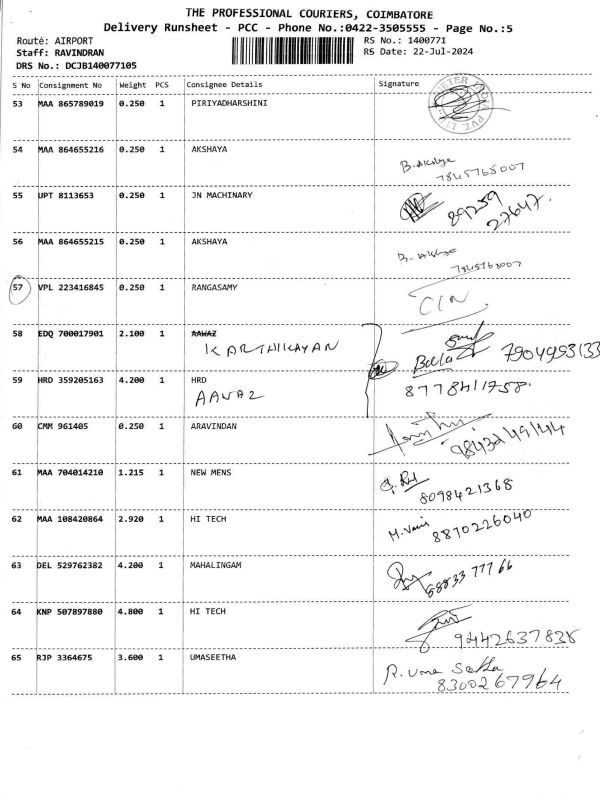 THE PROFESSIONAL COURIERS, COIMBATORE
Delivery Runsheet - PCC - Phone No.:0422-3505555 - Page No.:5
Route: AIRPORT
RS No.: 1400771
Staff: RAVINDRAN
RS Date: 22-Jul-2024
DRS No.: DCJB140077105
S No Consignment No Weight PCS Consignee Details Signature
53 MAA 865789019 0.250 1 PIRIYADHARSHINI
54 MAA 864655216 0.250 1 AKSHAYA
7845768007
55 UPT 8113653 0.250 1 JN MACHINARY
89259
27647.
56 MAA 864655215 0.250 1 AKSHAYA
7845768007
57 VPL 223416845 0.250 1 RANGASAMY
58 EDQ 700017901 2.100 1 AAWAZ
KARTHIKAYAN
Balla
59 HRD 359205163 4.200 1 HRD
AAVAZ
60 CMM 961405 0.250 1 ARAVINDAN
61 MAA 704014210 1.215 1 NEW MENS
8098421368
62 MAA 108420864 2.920 1 HI TECH
8870226040
63 DEL 529762382 4.200 1 MAHALINGAM
64 KNP 507897880 4.800 1 HI TECH
9442637838
65 RJP 3364675 3.600 1 UMASEETHA
R. Uma Seetha
8300267964